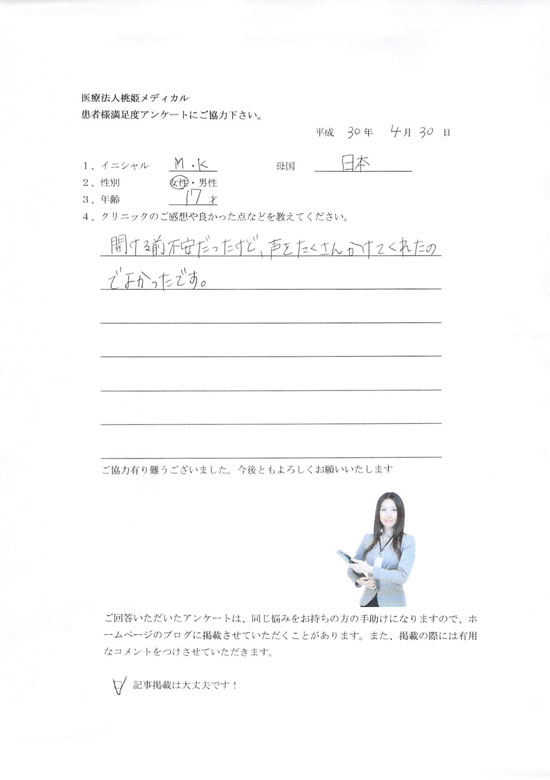 医療法人桃姫メディカル
患者様満足度アンケートにご協力下さい。
平成 30年 4月 30日
1、イニシャル M.K 母国 日本
2、性別 女性・男性
3、年齢 17才
4、クリニックのご感想や良かった点などを教えてください。
開ける前不安だったけど、声をたくさんかけてくれたの
でよかったです。
ご協力有り難うございました。今後ともよろしくお願いいたします
ご回答いただいたアンケートは、同じ悩みをお持ちの方の手助けになりますので、ホ
ームページのブログに掲載させていただくことがあります。また、掲載の際には有用
なコメントをつけさせていただきます。
記事掲載は大丈夫です！